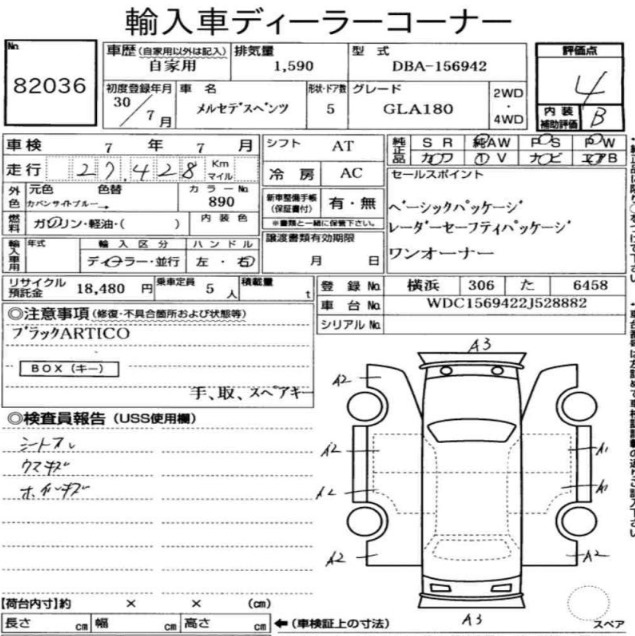 輸入車ディーラーコーナー
No. 82036
車歴(自家用以外は記入) 自家用
排気量 1,590
型式 DBA-156942
評価点 4
内装補助評価 B
初度登録年月 30/7月
車名 メルセデスベンツ
形状・ドア数 5
グレード GLA180
2WD・4WD
車検 7年7月
シフト AT
純正品 SR 純AW PS PW
カワ TV ナビ エアB
走行 27,428 Km マイル
冷房 AC
セールスポイント
外色 元色 色替 カラーNo.
カバンサイトブルー→ 890
新車整備手帳(保証書付) 有・無
※書類と一緒に保管下さい。
ベーシックパッケージ
レーダーセーフティパッケージ
ワンオーナー
燃料 ガソリン・軽油・( ) 内装色
譲渡書類有効期限
月 日
輸入車用 年式 輸入区分 ハンドル
ディーラー・並行 左・右
リサイクル預託金 18,480円
乗車定員 5人
積載量 t
登録No. 横浜 306 た 6458
車台No. WDC1569422J528882
シリアルNo.
◎注意事項(修復・不具合箇所および状態等)
ブラックARTICO
BOX(キー)
手、取、スペアキー
◎検査員報告(USS使用欄)
シートスレ
ウスキズ
ホイルキズ
A3
A2
A2 A1
A2 A1
A2 A2
A3
スペア
【荷台内寸】約 × × (cm)
長さ cm 幅 cm 高さ cm ←(車検証上の寸法)